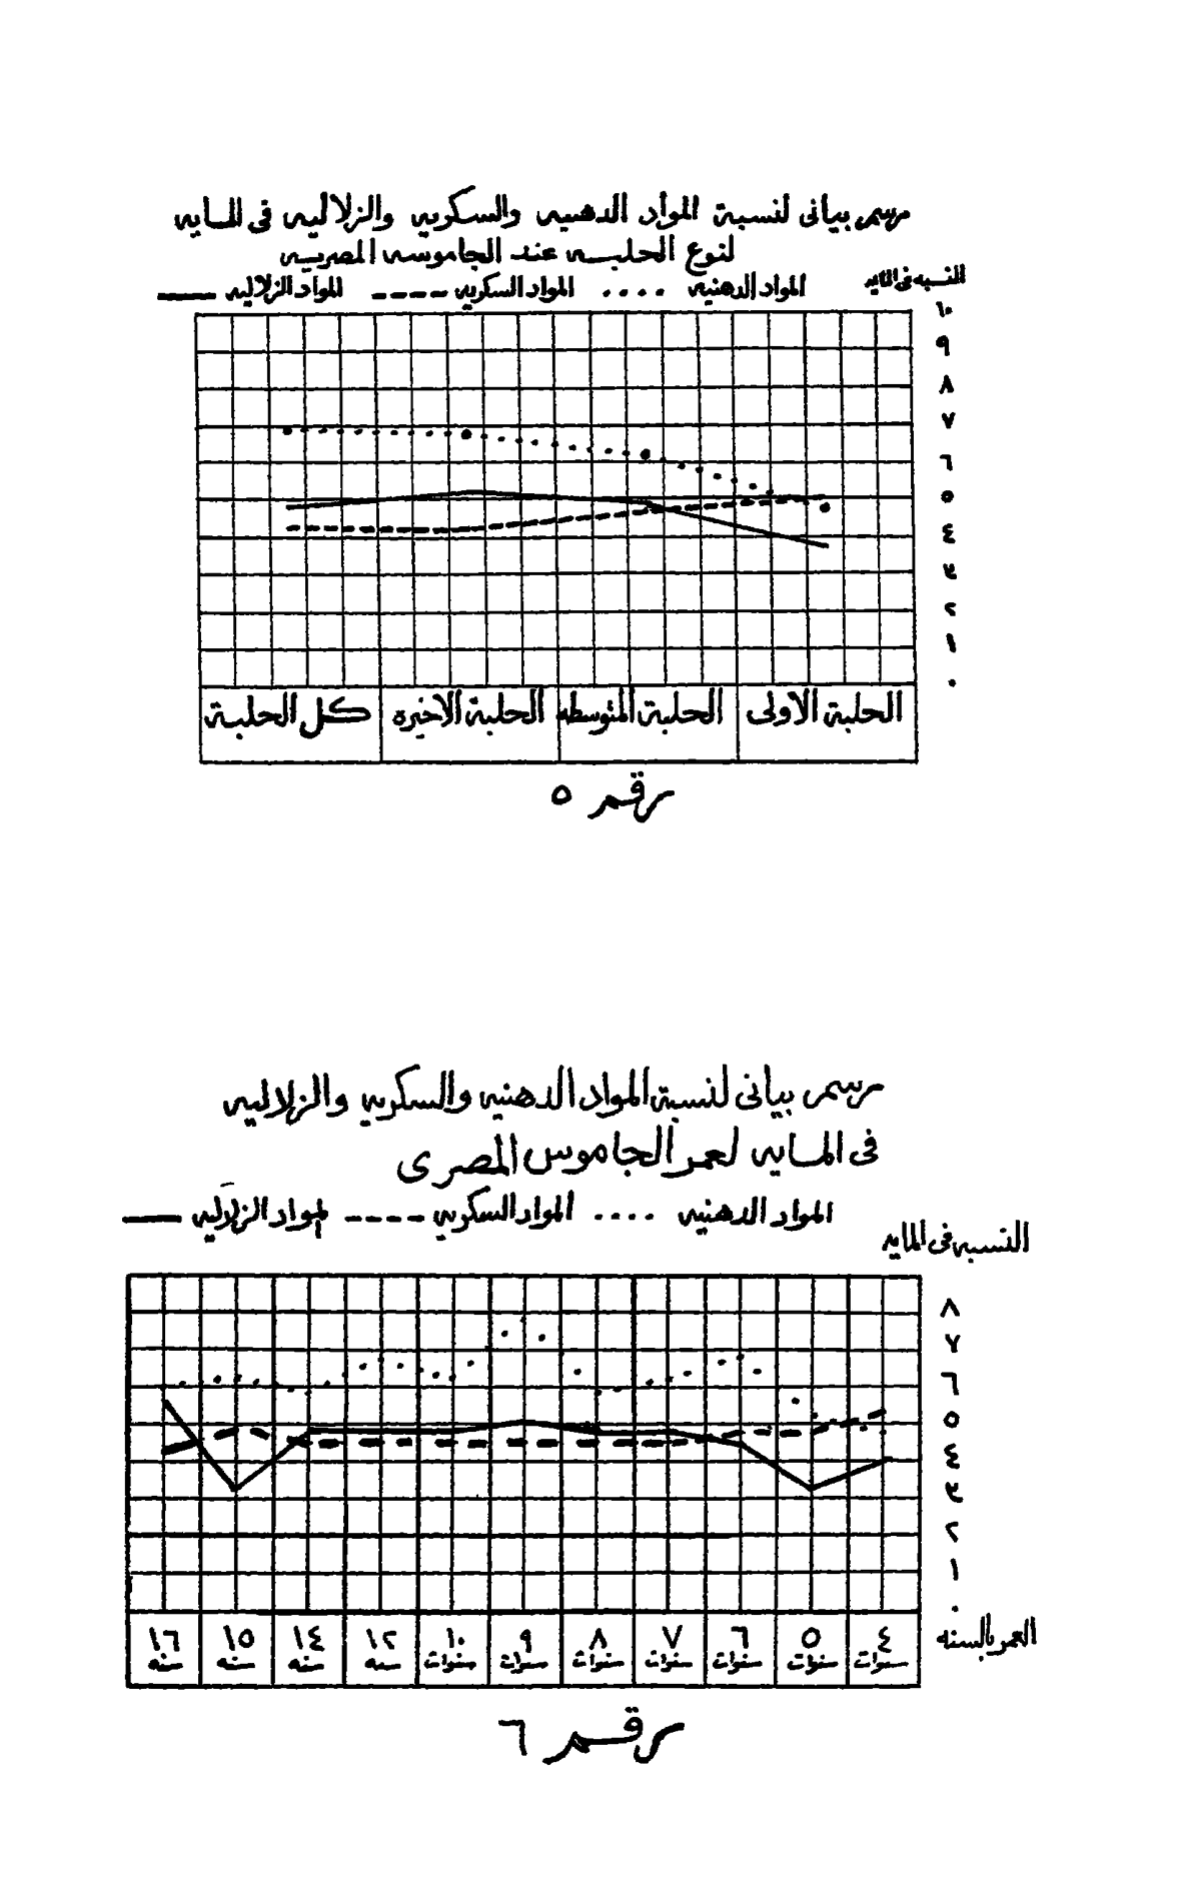 رسم بيانى لنسبة المواد الدهنيه والسكريه والزلاليه فى المايه
لنوع الحلبه عند الجاموسه المصريه
المواد الدهنيه .... المواد السكريه ---- المواد الزلاليه ——
النسبه فى المايه
١٠
٩
٨
٧
٦
٥
٤
٣
٢
١
٠
الحلبة الاولى الحلبة المتوسطه الحلبة الاخيره كل الحلبة
رقم ٥
رسم بيانى لنسبة المواد الدهنيه والسكريه والزلاليه
فى المايه لعمر الجاموس المصرى
المواد الدهنيه .... المواد السكريه ---- المواد الزلاليه ——
النسبه فى المايه
٨
٧
٦
٥
٤
٣
٢
١
٠
العمر بالسنه
٤ ٥ ٦ ٧ ٨ ٩ ١٠ ١٢ ١٤ ١٥ ١٦
سنوات سنوات سنوات سنوات سنوات سنوات سنوات سنه سنه سنه سنه
رقم ٦